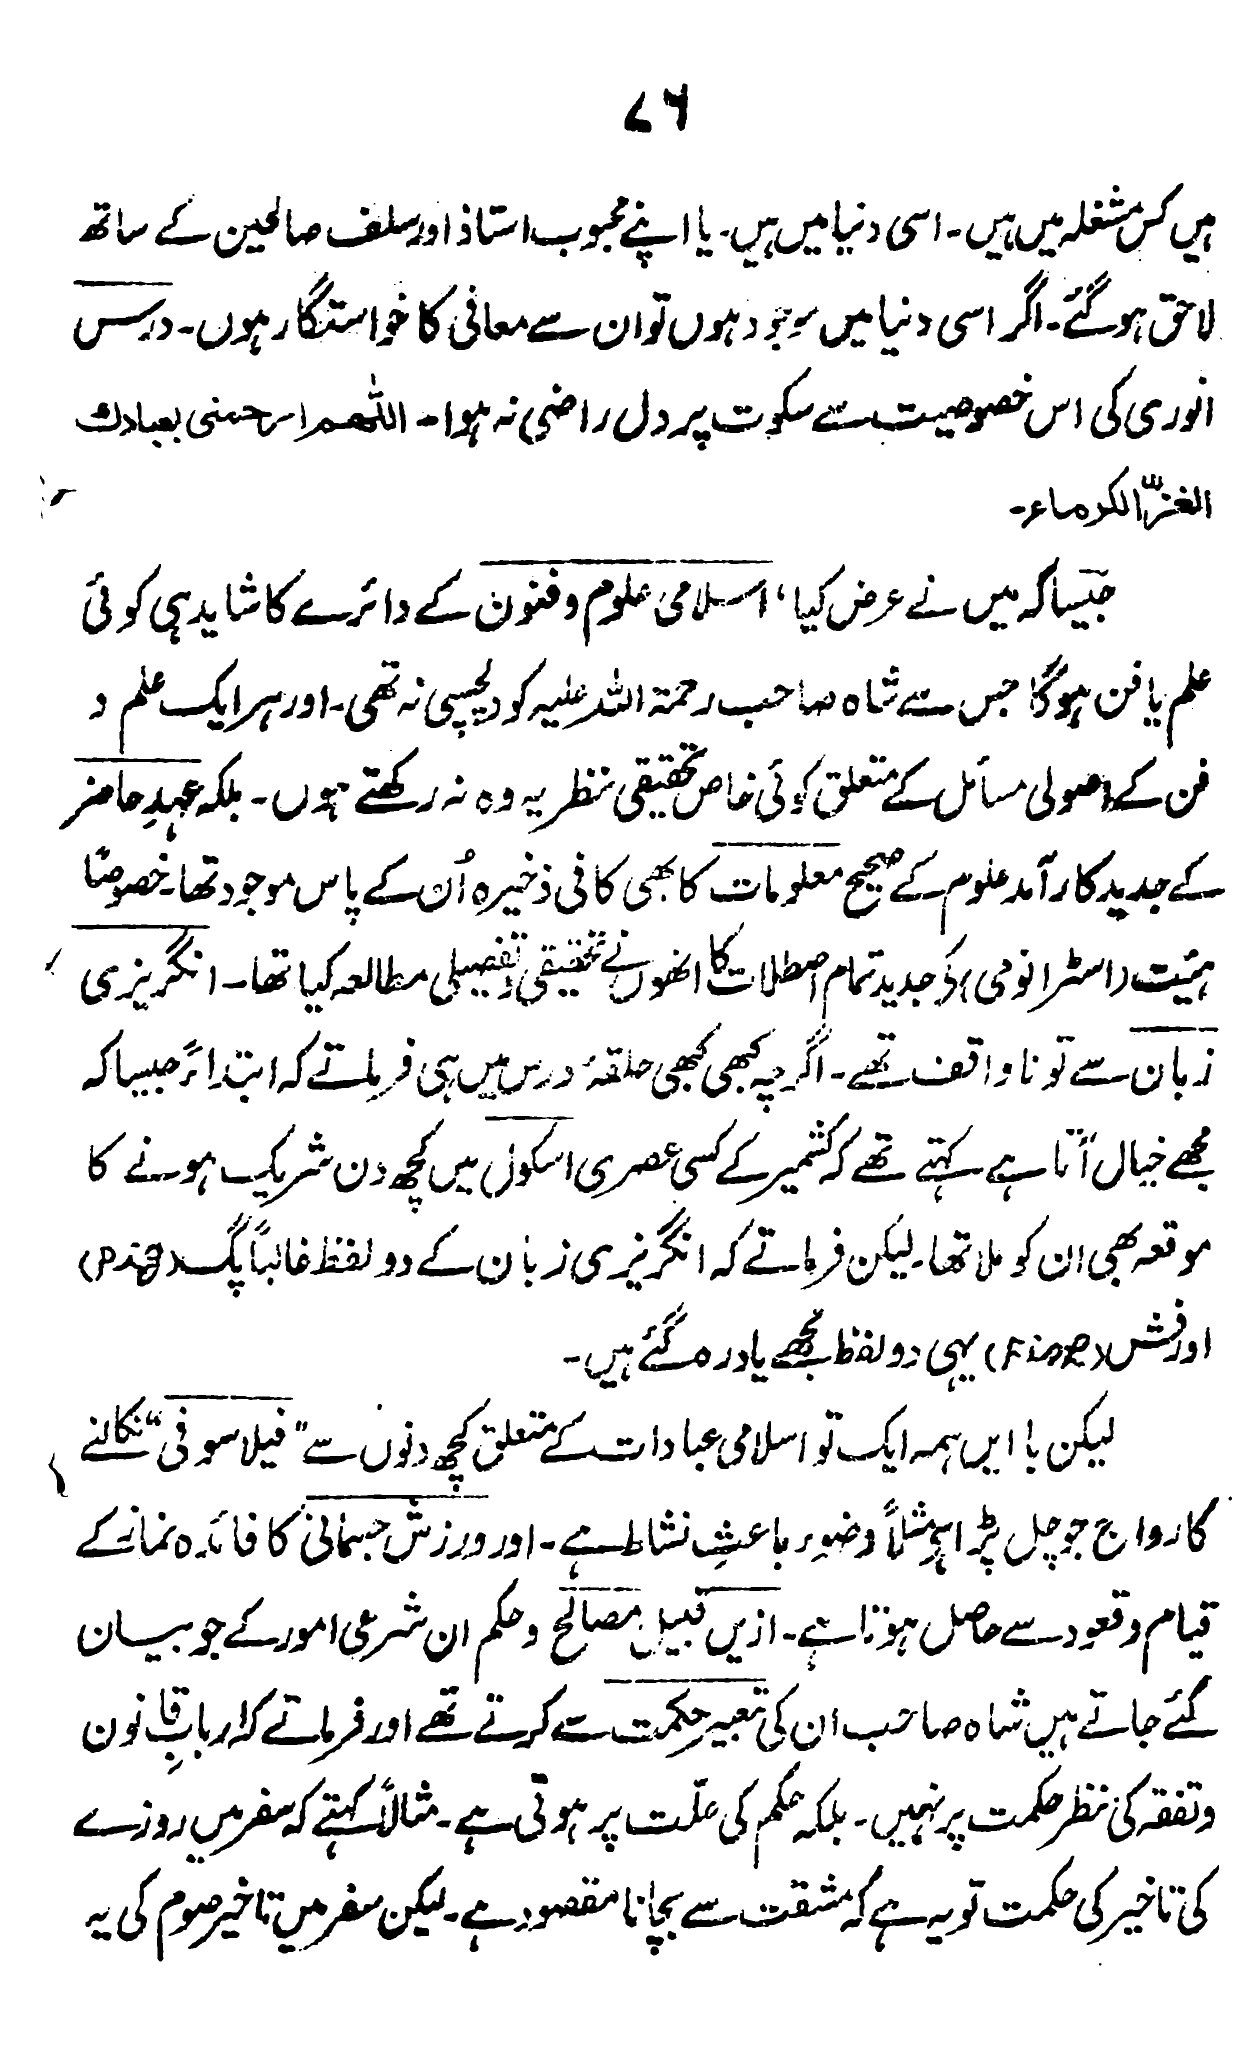 ۷۶
ہیں کس مشغلہ میں ہیں۔ اسی دنیا میں ہیں۔ یا اپنے محبوب استاذ اور سلف صالحین کے ساتھ
لاحق ہوگئے۔ اگر اسی دنیا میں موجود ہوں تو ان سے معافی کا خواستگار ہوں۔ درس
انوری کی اس خصوصیت سے سکوت پر دل راضی نہ ہوا۔ اللّٰھم ارحمنی بعبادك
الغرّ الکرماء۔
جیسا کہ میں نے عرض کیا، اسلامی علوم و فنون کے دائرے کا شاید ہی کوئی
علم یا فن ہوگا جس سے شاہ صاحب رحمۃ اللہ علیہ کو دلچسپی نہ تھی۔ اور ہر ایک علم و
فن کے اصولی مسائل کے متعلق کوئی خاص تحقیقی نظریہ وہ نہ رکھتے ہوں۔ بلکہ عہدِ حاضر
کے جدید کار آمد علوم کے صحیح معلومات کا بھی کافی ذخیرہ اُن کے پاس موجود تھا۔ خصوصاً
ہیئت (اسٹرانومی) کی جدید تمام اصطلات کا انھوں نے تحقیقی و تفصیلی مطالعہ کیا تھا۔ انگریزی
زبان سے تو ناواقف تھے۔ اگرچہ کبھی کبھی حلقۂ درس میں ہی فرماتے کہ ابتداءً جیسا کہ
مجھے خیال آتا ہے کہتے تھے کہ کشمیر کے کسی عصری اسکول میں کچھ دن شریک ہونے کا
موقعہ بھی ان کو ملا تھا۔ لیکن فرماتے کہ انگریزی زبان کے دو لفظ غالباً پگ (Pig)
اور فش (Fish) یہی دو لفظ مجھے یاد رہ گئے ہیں۔
لیکن با ایں ہمہ ایک تو اسلامی عبادات کے متعلق کچھ دنوں سے "فیلاسوفی" نکالنے
کا رواج جو چل پڑا ہے مثلاً وضوء باعثِ نشاط ہے۔ اور ورزش جسمانی کا فائدہ نماز کے
قیام و قعود سے حاصل ہوتا ہے۔ ازیں قبیل مصالح و حکم ان شرعی امور کے جو بیان
کئے جاتے ہیں شاہ صاحب ان کی تعبیر حکمت سے کرتے تھے اور فرماتے کہ ارباب قانون
و تفقہ کی نظر حکمت پر نہیں۔ بلکہ حکم کی علّت پر ہوتی ہے۔ مثالاً کہتے کہ سفر میں روزے
کی تاخیر کی حکمت تو یہ ہے کہ مشقت سے بچانا مقصود ہے۔ لیکن سفر میں تاخیر صوم کی یہ